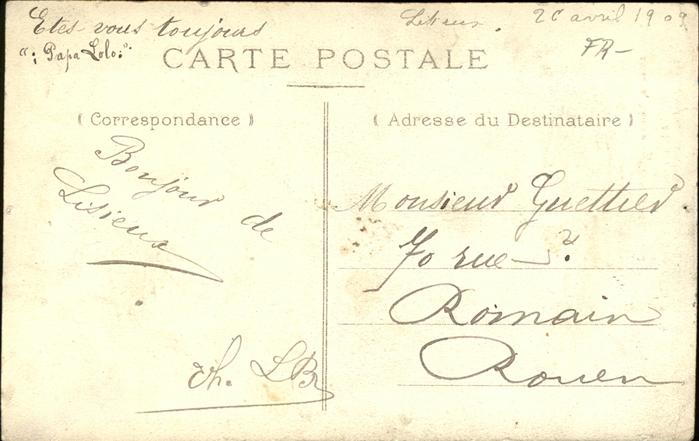 Etes vous toujours
": Papa Lolo:"
Lisieux. 26 avril 1909
FR-
CARTE POSTALE
( Correspondance )
Bonjour de
Lisieux
Ch. LB
( Adresse du Destinataire )
Monsieur Guettier
70 rue - ?
Romain
Rouen